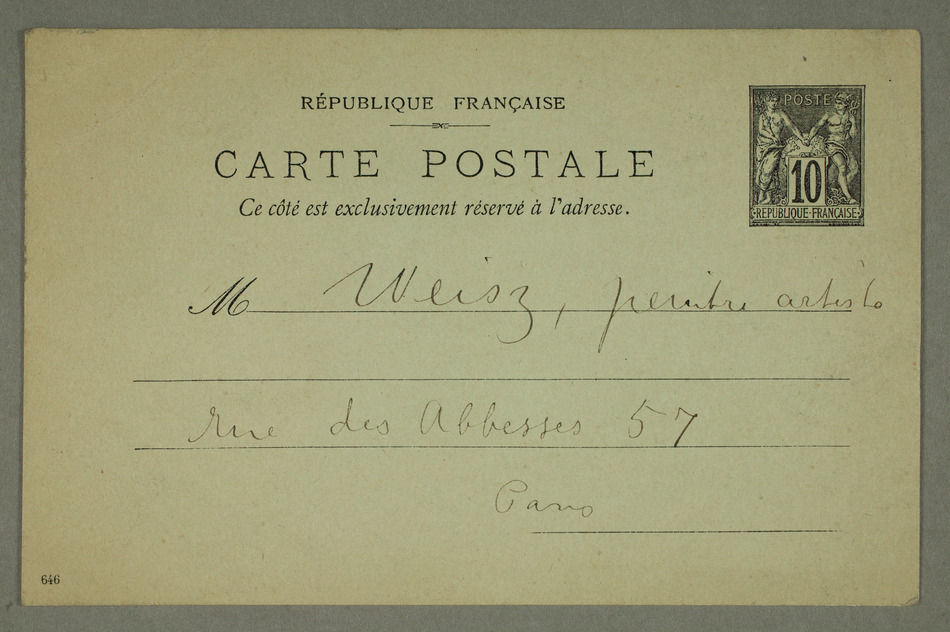 RÉPUBLIQUE FRANÇAISE
CARTE POSTALE
Ce côté est exclusivement réservé à l'adresse.
POSTE
10
RÉPUBLIQUE·FRANÇAISE
M Weisz, peintre artiste
rue des Abbesses 57
Paris
646